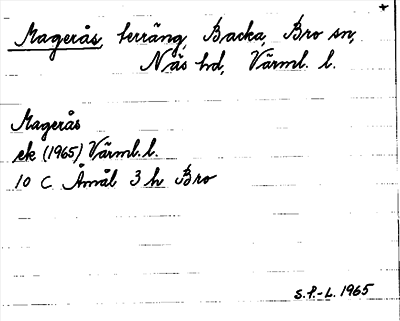 +
Magerås, terräng, Backa, Bro sn,
Näs hd, Värml. l.
Magerås
ek (1965) Värml. l.
10 C Åmål 3 h Bro
S.F.-L. 1965